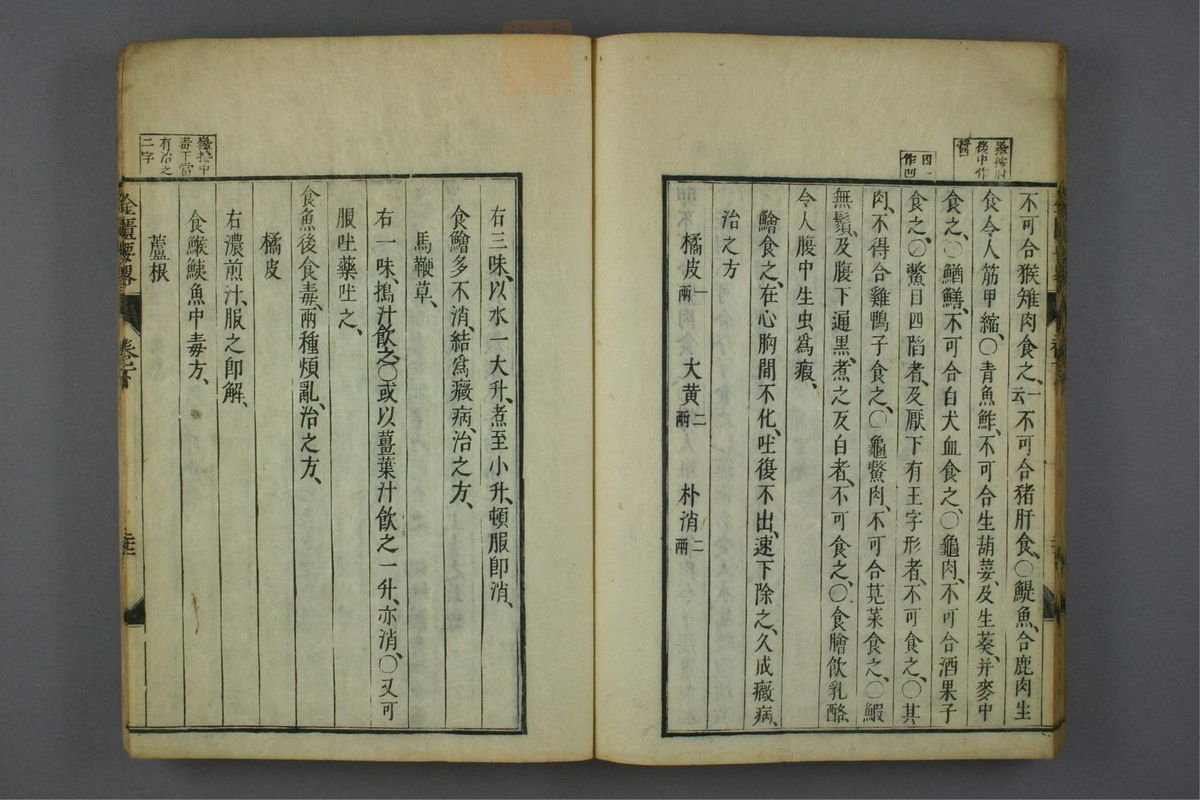 不可合猴雉肉食之、一云不可合猪肝食、○鯷魚、合鹿肉生
食、令人筋甲縮、○青魚鮓、不可合生葫荽、及生葵、并麥中
食之、○鰌鱔、不可合白犬血食之、○龜肉、不可合酒果子
食之、○鱉目四陷者、及厭下有王字形者、不可食之、○其
肉、不得合雞鴨子食之、○龜鱉肉、不可合莧菜食之、○鰕
無鬚、及腹下通黑、煮之反白者、不可食之、○食膾飲乳酪、
令人腹中生虫爲瘕、
鱠食之、在心胸間不化、吐復不出、速下除之、久成癥病、
治之方
橘皮一兩 大黄二兩 朴消二兩
右三味、以水一大升、煮至小升、頓服即消、
食鱠多不消、結爲癥病、治之方、
馬鞭草、
右一味、搗汁飲之、○或以薑葉汁飲之一升、亦消、○又可
服吐藥吐之、
食魚後食毒、兩種煩亂、治之方、
橘皮
右濃煎汁、服之即解、
食鯸鮧魚中毒方、
蘆根
四一
作凹
按中
毒下當
有治之
二字
金匱要畧
卷下